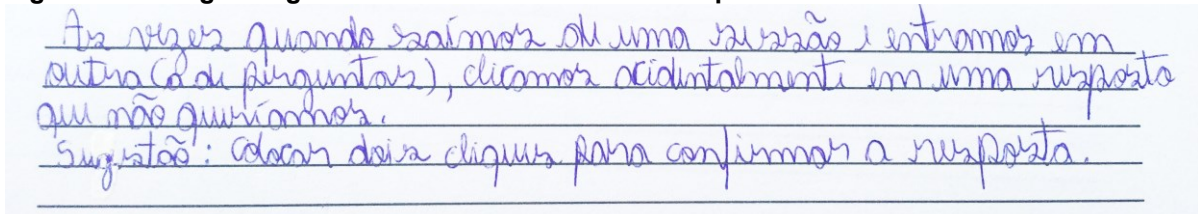 As vezes quando saímos de uma sessão e entramos em
outra (a de perguntas), clicamos acidentalmente em uma resposta
que não queríamos.
Sugestão: Colocar dois cliques para confirmar a resposta.